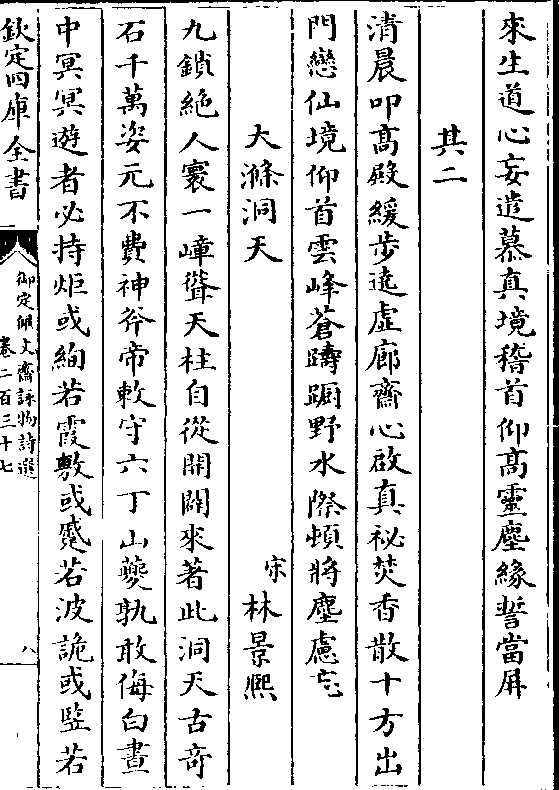 來生道心妄遣慕真境稽首仰髙靈塵緣誓當屏
其二
清晨叩髙殿緩步遶虛廊齋心啟真祕焚香散十方出
門戀仙境仰首雲峰蒼躊踟野水際頓將塵慮忘
大滌洞天
宋林景熈
九鎖絶人寰一嶂聳天柱自從開闢來著此洞天古竒
石千萬姿元不費神斧帝敕守六丁山夔孰敢侮白晝
中冥冥遊者必持炬或絢若霞敷或蹙若波詭或竪若
欽定四庫全書
御定佩文齋詠物詩選
卷二百三十七
八